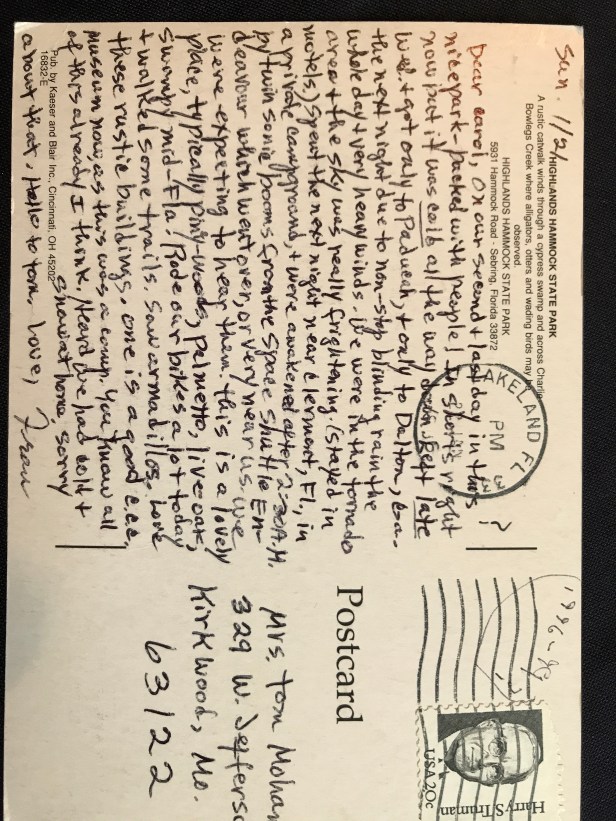 Sun. 1/21
HIGHLANDS HAMMOCK STATE PARK
A rustic catwalk winds through a cypress swamp and across Charlie
Bowlegs Creek where alligators, otters and wading birds may be
observed.
HIGHLANDS HAMMOCK STATE PARK
5931 Hammock Road - Sebring, Florida 33872
Dear Carol, On our second & last day in this
nice park-packed with people! In shorts right
now but it was cold all the way down. Left late
Wed. & got only to Paducah, & only to Dalton, Ga.
the next night due to non-stop blinding rain the
whole day & very heavy winds. We were in the tornado
area & the sky was really frightning. (stayed in
motels.) Spent the next night near Clermont, Fl., in
a private campground, & were awakened after 2:30 A.M.
by twin sonic booms from the space shuttle En-
deavour which went over, or very near us. We
were expecting to hear them. This is a lovely
place, typically piny-woods, palmetto, live oak,
swampy mid-Fla. Rode our bikes a lot today
& walked some trails. Saw armadillos. Love
these rustic buildings. One is a good C.C.C.
museum now, as this was a camp. You know all
of this already I think. Heard we had cold &
snow at home, sorry
about that. Hello to Tom. Love,
Fran
Pub. by Kaeser and Blair Inc., Cincinnati, OH 45202
16832-E
LAKELAND FL
PM
Postcard
1996
Harry S. Truman
USA 20c
Mrs. Tom Mohan
329 W. Jefferso
Kirkwood, Mo.
63122